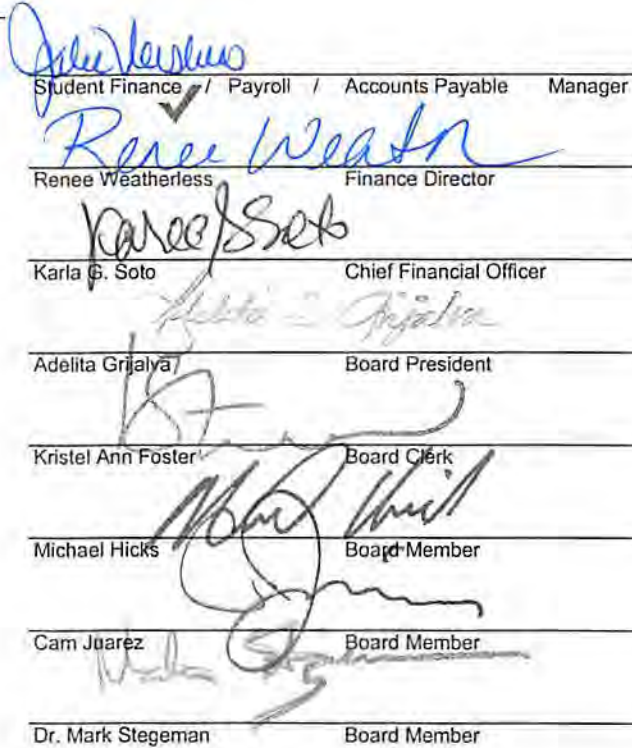 Student Finance / Payroll / Accounts Payable Manager
Renee
Renee Weatherless Finance Director
Soto
Karla G. Soto Chief Financial Officer
Grijalva
Adelita Grijalva Board President
Kristel Ann Foster Board Clerk
Michael Hicks Board Member
Cam Juarez Board Member
Dr. Mark Stegeman Board Member